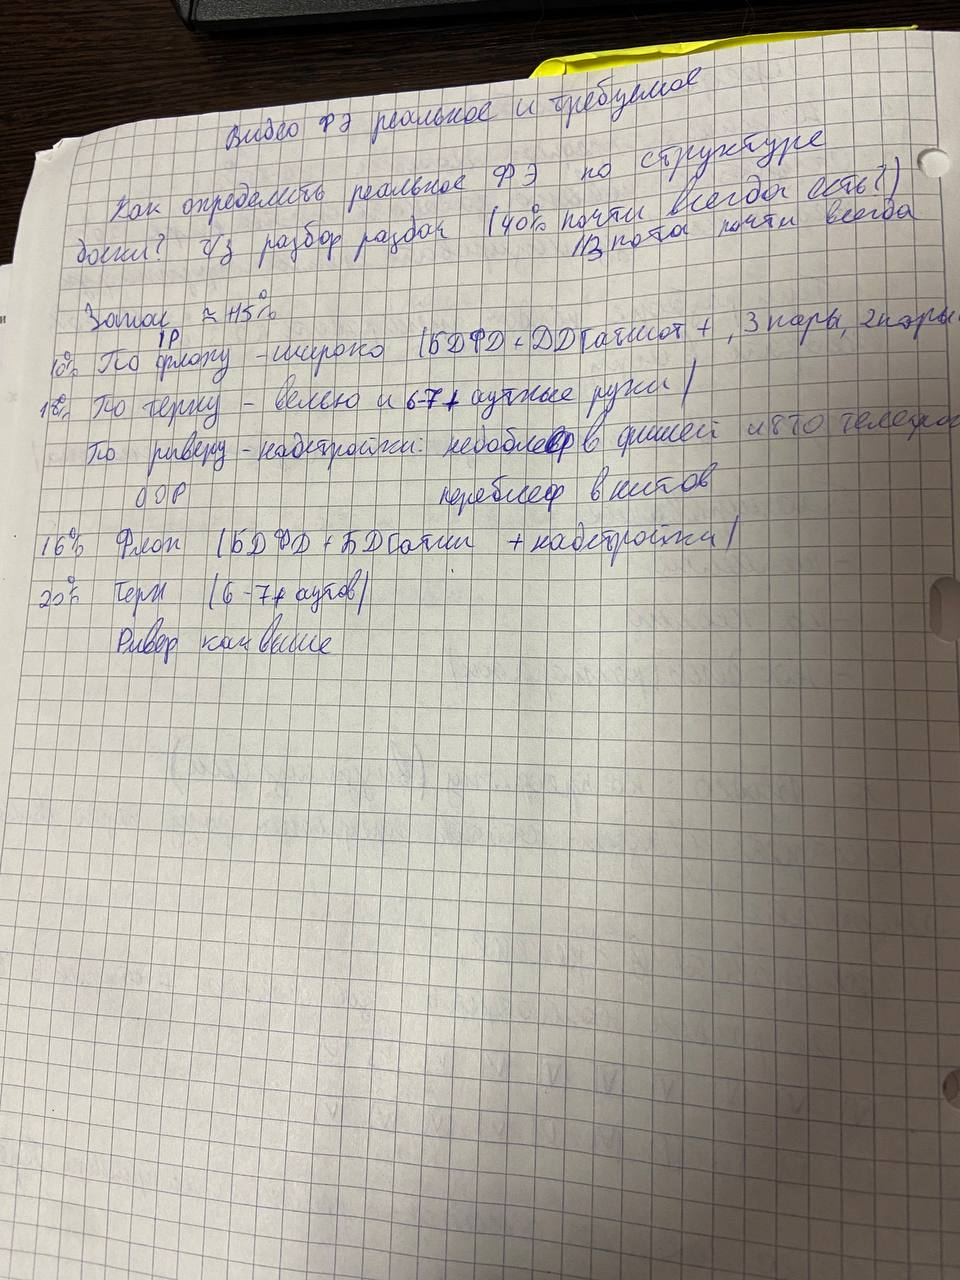 Видео ФЭ реальное и требуемое
Как определить реальное ФЭ по структуре
доски? Из разбор раздач (40% почти всегда есть?)
1/3 пота почти всегда
Запас ≈ +15%
IP
10% По флопу - широко (БДФД + ДД Гатшот +, 3 пары, 2 пары
18% По терну - вельью и 6-7+ аутные руки)
По риверу - надстройки: недоблеф в фишей и 870 телефон
OOP переблеф в китов
16% Флоп (БДФД + БД Гатши + надстройки)
20% Терн (6-7+ аутов)
Ривер как выше